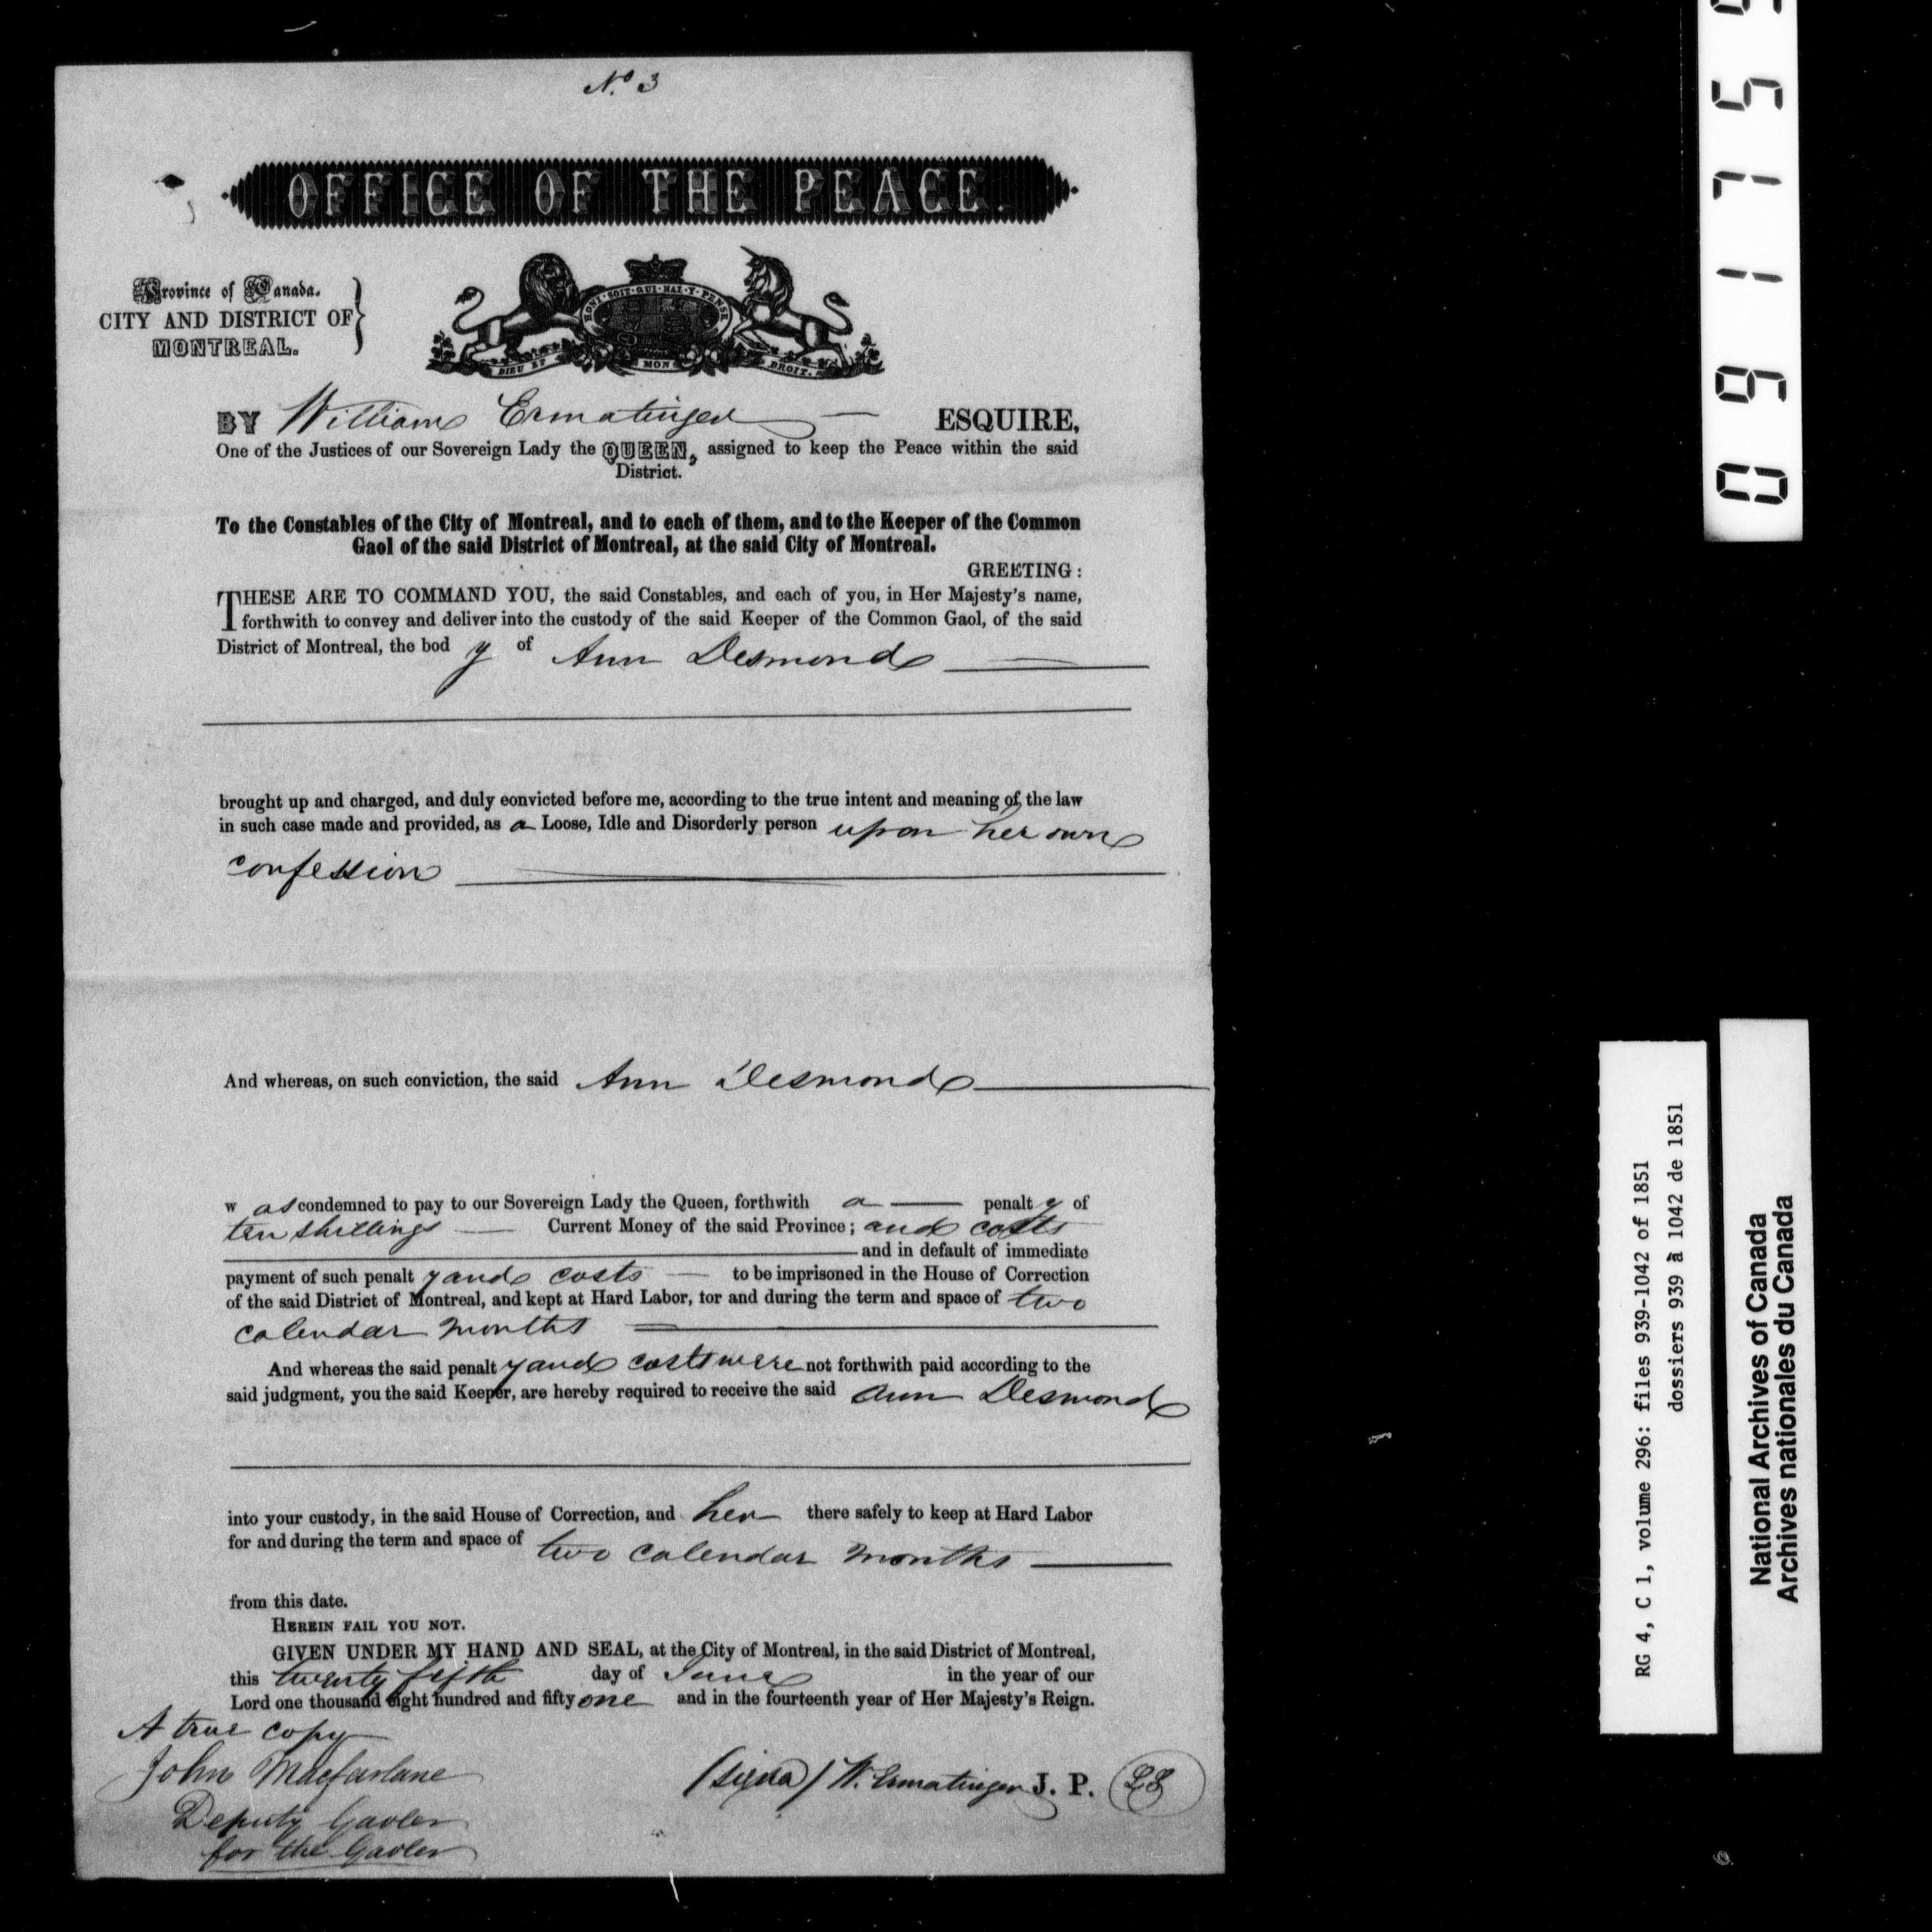 No. 3
OFFICE OF THE PEACE.
Province of Canada.
CITY AND DISTRICT OF
MONTREAL.
HONI·SOIT·QUI·MAL·Y·PENSE
DIEU ET MON DROIT.
BY William Ermatinger — ESQUIRE,
One of the Justices of our Sovereign Lady the QUEEN, assigned to keep the Peace within the said
District.
To the Constables of the City of Montreal, and to each of them, and to the Keeper of the Common
Gaol of the said District of Montreal, at the said City of Montreal.
GREETING:
THESE ARE TO COMMAND YOU, the said Constables, and each of you, in Her Majesty's name,
forthwith to convey and deliver into the custody of the said Keeper of the Common Gaol, of the said
District of Montreal, the body of Ann Desmond
brought up and charged, and duly convicted before me, according to the true intent and meaning of the law
in such case made and provided, as a Loose, Idle and Disorderly person upon her own
confession
And whereas, on such conviction, the said Ann Desmond
was condemned to pay to our Sovereign Lady the Queen, forthwith a — penalty of
ten shillings — Current Money of the said Province; and costs
and in default of immediate
payment of such penalty and costs — to be imprisoned in the House of Correction
of the said District of Montreal, and kept at Hard Labor, for and during the term and space of two
calendar months
And whereas the said penalty and costs were not forthwith paid according to the
said judgment, you the said Keeper, are hereby required to receive the said Ann Desmond
into your custody, in the said House of Correction, and her there safely to keep at Hard Labor
for and during the term and space of two calendar months
from this date.
HEREIN FAIL YOU NOT.
GIVEN UNDER MY HAND AND SEAL, at the City of Montreal, in the said District of Montreal,
this twenty fifth day of June in the year of our
Lord one thousand eight hundred and fifty one and in the fourteenth year of Her Majesty's Reign.
A true copy
John Macfarlane
Deputy Gaoler
for the Gaoler
(signd) W. Ermatinger J. P. LS
RG 4, C 1, volume 296: files 939-1042 of 1851
dossiers 939 à 1042 de 1851
National Archives of Canada
Archives nationales du Canada
091759